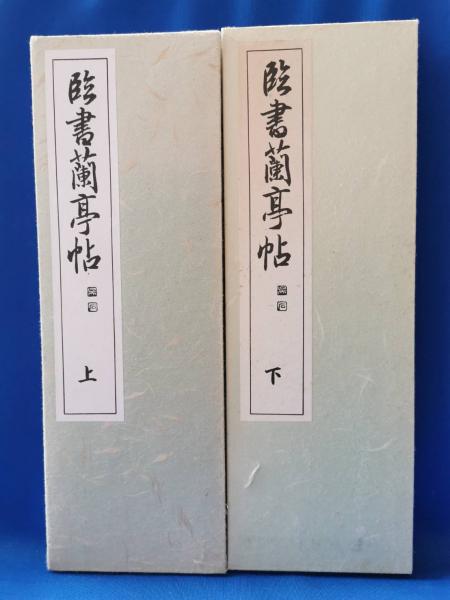 臨書蘭亭帖
上
臨書蘭亭帖
下